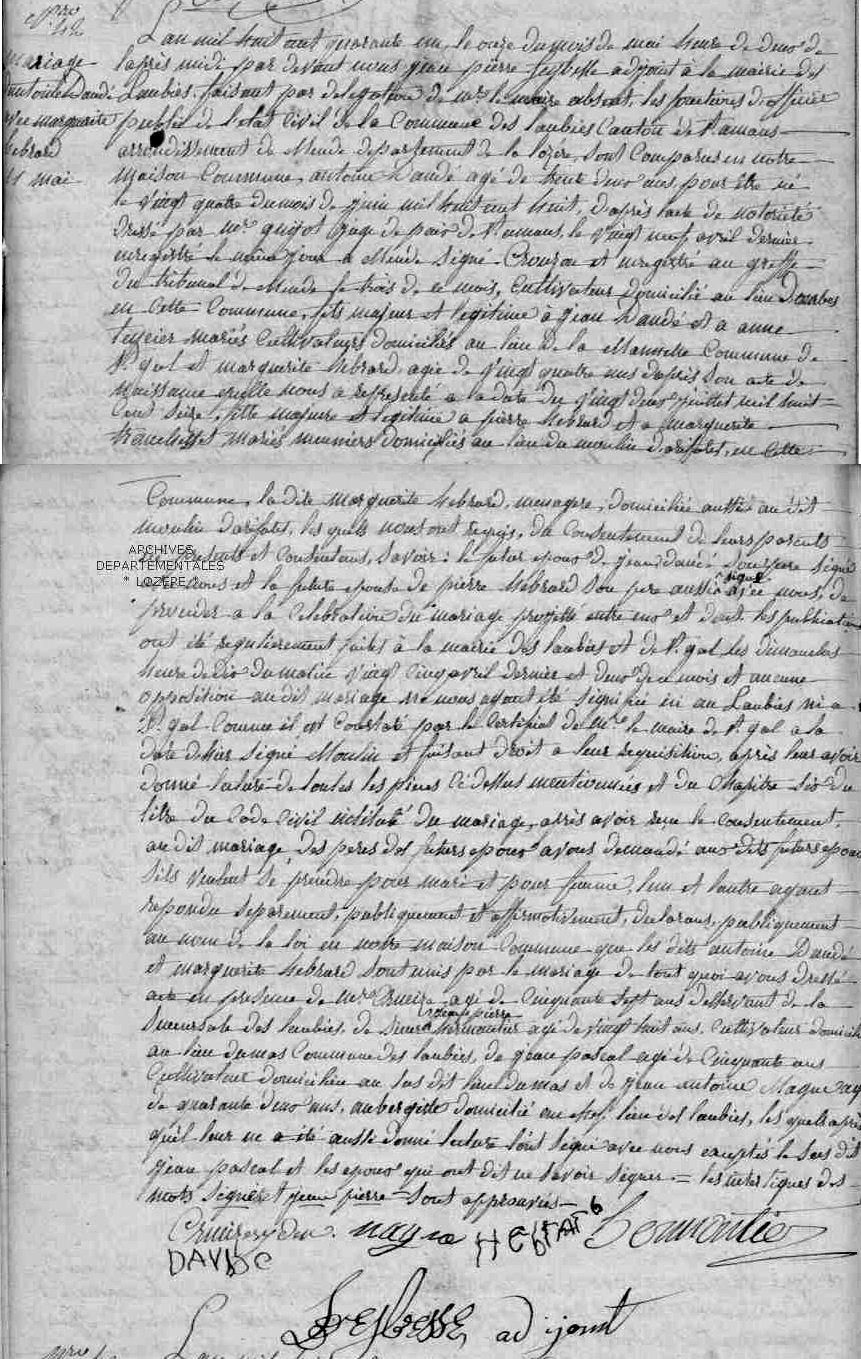 mariage
antoine Daudé
avec marguerite
hebrard
11 mai
L'an mil huit cent quarante un, le onze du mois de mai heure de deux de
l'après midi par devant nous jean pierre adjoint à la mairie des
Laubies, faisant par delegation de mr le maire absent, les fonctions d'officier
public de l'etat civil de la Commune des laubies Canton de St amans
arrondissement de Mende departement de la lozère, sont Comparus en notre
maison Commune, antoine Daudé agé de trente deux ans, pour être né
le vingt quatre du mois de juin mil huit cent huit, d'après l'acte de notoriété
dressé par mr juge de paix de St amans, le vingt neuf avril dernier
enregistré le même jour a Mende signé et enregistré au greffe
du tribunal de Mende le trois de ce mois, Cultivateur domicilié au lieu
en cette Commune, fils majeur et legitime a jean Daudé et a anne
mariés Cultivateurs domiciliés au lieu de la Commune de
St gal et marguerite hebrard, agée de vingt quatre ans d'après son acte de
naissance qu'elle nous a representé a la date du vingt deux juillet mil huit
Cent seize, fille majeure et legitime a pierre hebrard et a marguerite
mariés meuniers domiciliés au lieu du moulin en cette
Commune, la dite marguerite hebrard, menagere, domiciliée aussi au dit
moulin les quels nous ont requis, du Consentement de leurs parents
ARCHIVES
DEPARTEMENTALES
* LOZÈRE *
presents et Consentans, savoir : le futur epoux de jean daudé son pere signé
avec nous et la future epouse de pierre hebrard son pere aussi signé avec nous, de
proceder a la Celebration du mariage projetté entre eux et dont les publications
ont été regulierement faites à la mairie des laubies et de St gal les dimanches
heure de dix du matin vingt cinq avril dernier et deux de ce mois et aucune
opposition au dit mariage ne nous ayant été signifiée ni au Laubies ni a
St gal Comme il est Constaté par le Certificat de Mr le maire de St gal a la
date signé Moulin et faisant droit a leur requisition, après leur avoir
donné lecture de toutes les pièces Ci dessus mentionnées et du Chapitre six du
titre du Code Civil intitulé du mariage, après avoir reçu le consentement
au dit mariage des peres des futurs epoux avons demandé aux dits futurs epoux
s'ils veulent se prendre pour mari et pour femme, l'un et l'autre ayant
repondu separement, publiquement et affirmativement, declarons, publiquement
au nom de la loi en notre maison Commune que les dits antoine Daudé
et marguerite hebrard sont unis par le mariage de tout quoi avons dressé
acte en presence de mr agé de Cinquante sept ans desservant de la
succursale des laubies, de jean pierre agé de vingt huit ans, Cultivateur domicilié
au lieu du mas Commune des laubies, de jean pascal agé de Cinquante ans
Cultivateur domicilié au sus dit lieu du mas et de jean antoine agé
de quarante deux ans, aubergiste domicilié au chef lieu des laubies, les quels après
qu'il leur en a été aussi donné lecture l'ont signé avec nous exceptés le sus dit
jean pascal et les epoux qui ont dit ne savoir signer = les interlignes des
mots signé et jean pierre sont approuvés
DAVDE
adjoint